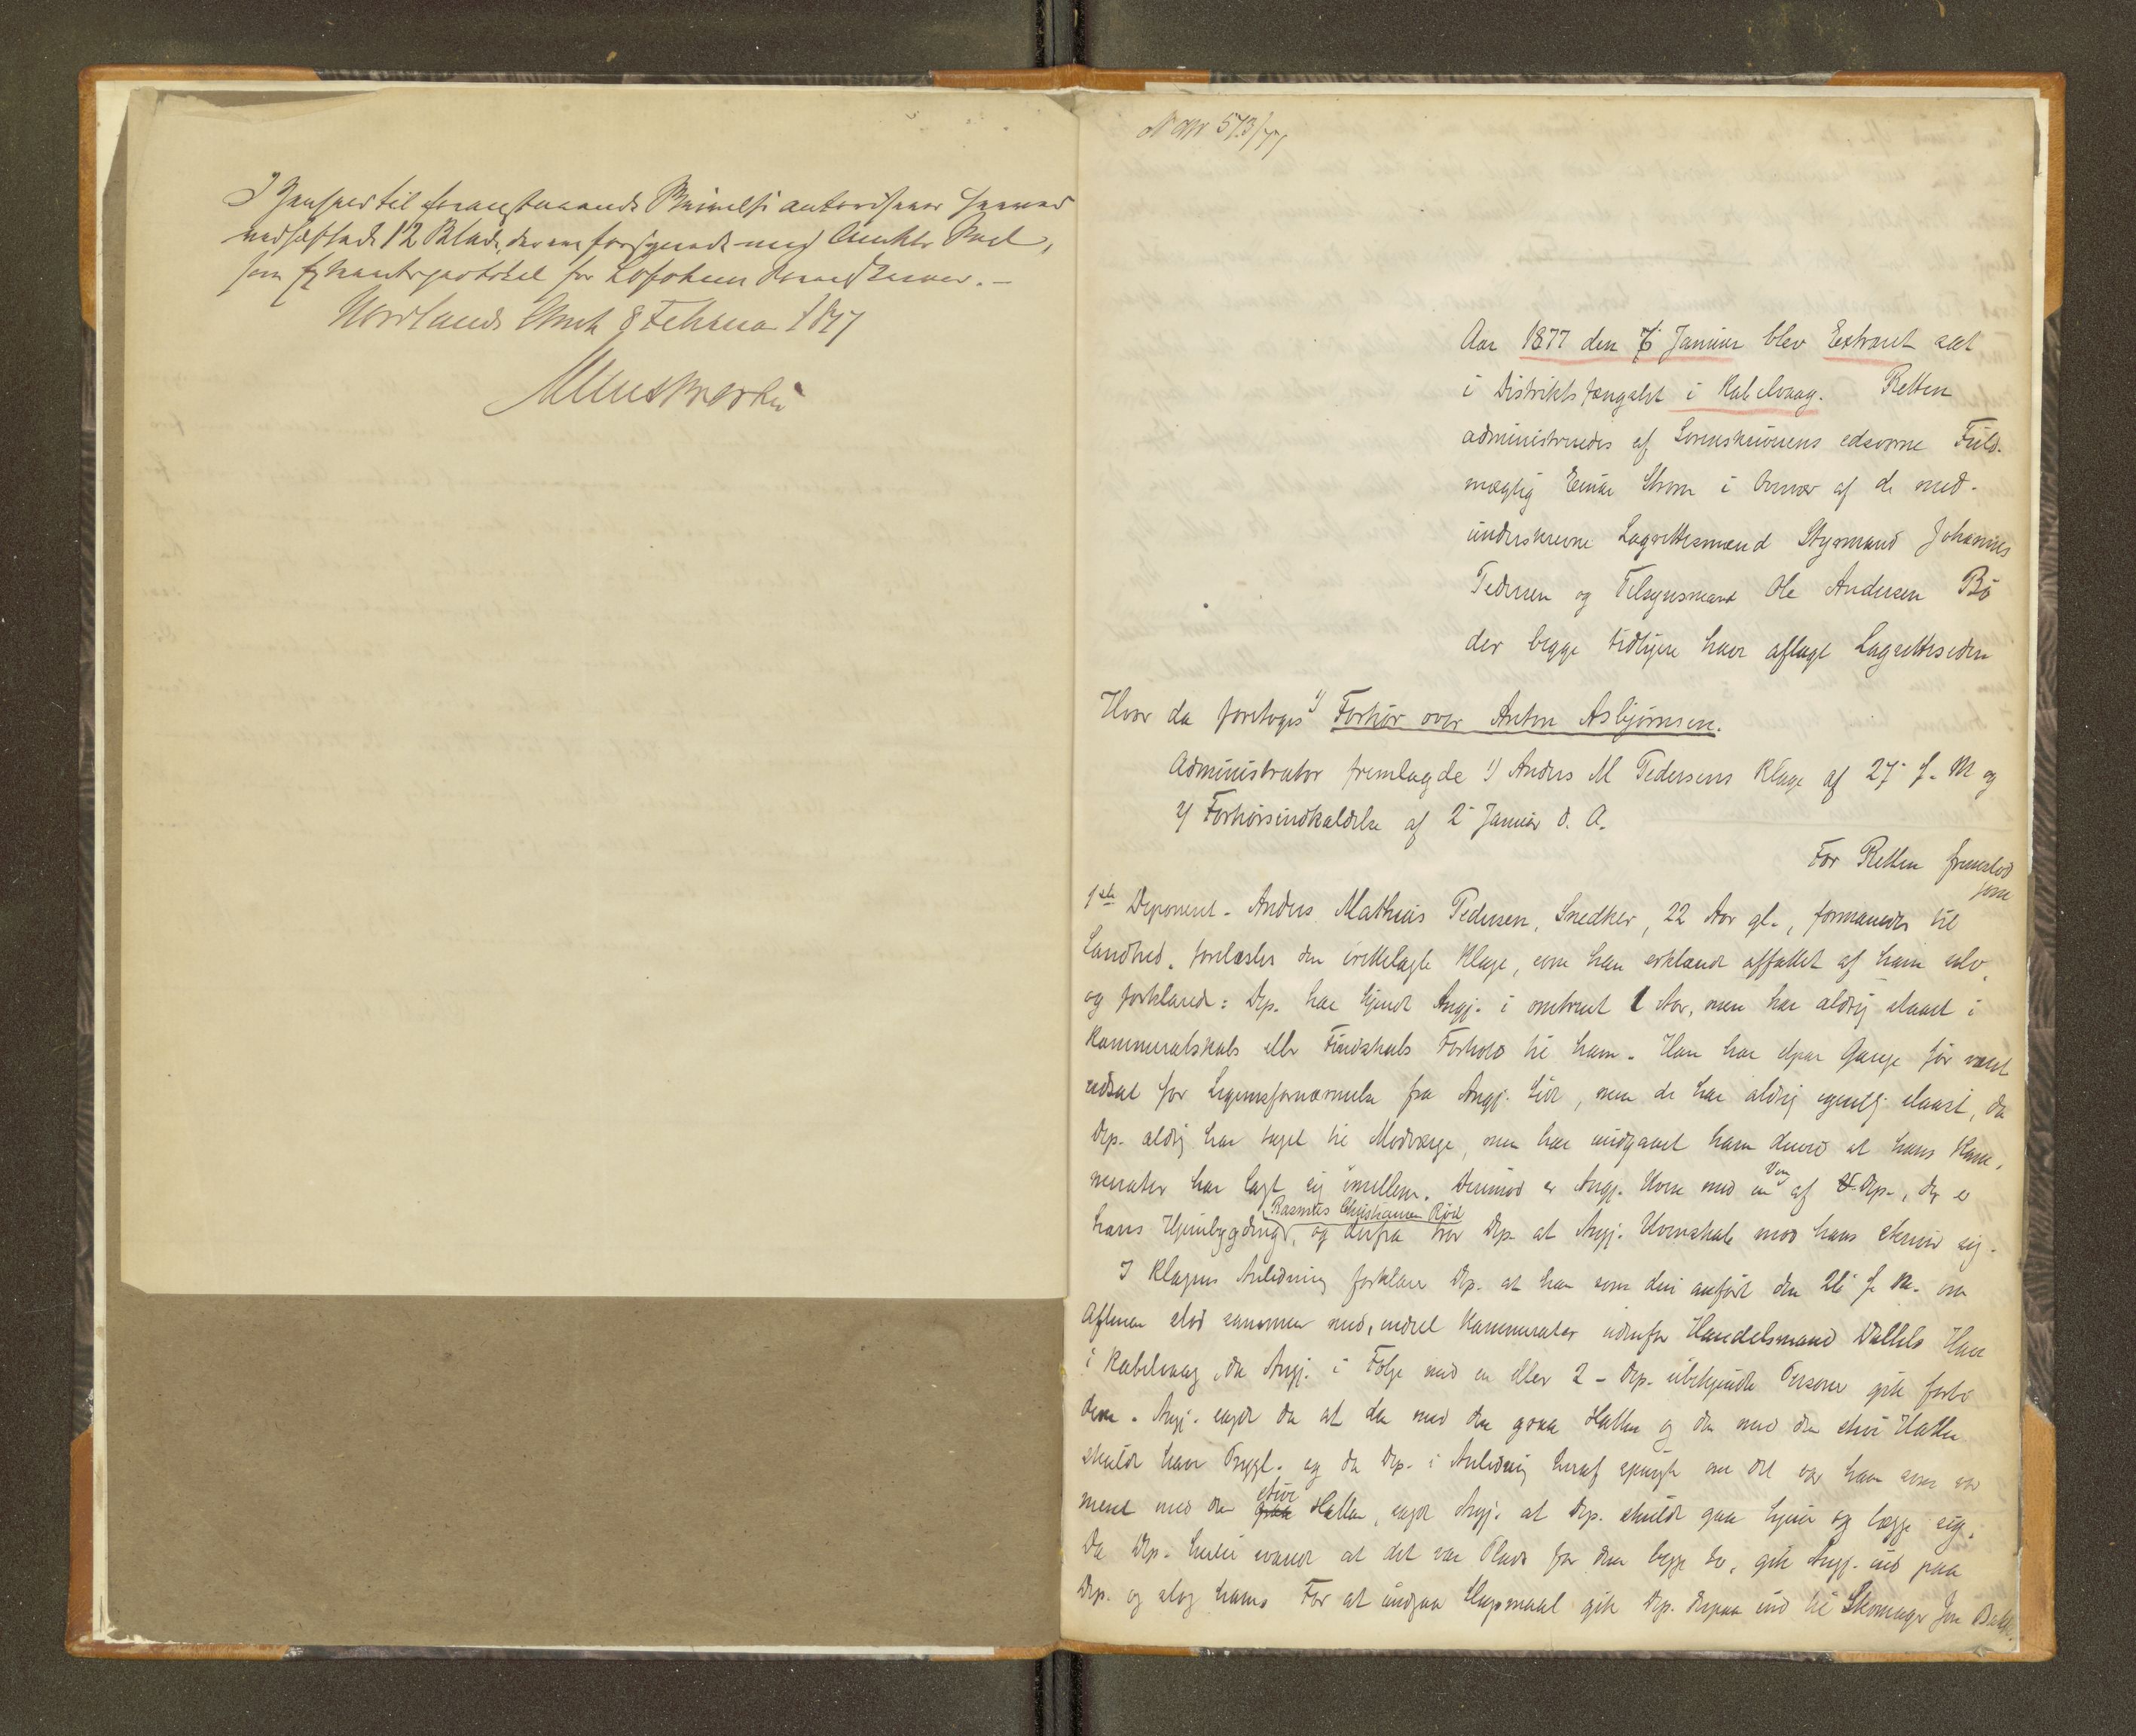 I Henhold til foranstaaende Bevilgelse autoriseres hermed
vedhæftede 12 Blade, der ere forsynede med Amtets Segl,
som Extraretsprotokol for Lofotens Sorenskriveri. -
Nordlands Amt 8 Februar 1877
N apr 573/77
Aar 1877 den 6 Januar blev Extraret sat
i Distriktsfængslet i Kabelvaag. Retten
administreredes af Sorenskriverens edsvorne Fuld-
mægtig Einar Strøm i Nærvær af de med-
underskrevne Lagrettesmænd Styrmand Johannes
Pedersen og Tilsynsmand Ole Andersen Bö
der begge tidligere have aflagt Lagretteseden
Hvor da foretoges 1) Forhör over Anton Asbjörnsen.
Administrator fremlagde 1) Anders M Pedersens Klage af 27 f. M og
2) Forhörsindkaldelse af 2 Januar d. A.
For Retten fremstod
som
1ste Deponent - Anders Mathias Pedersen, Snedker, 22 Aar gl., formanedes til
Sandhed, forelæstes den irettelagte Klage, som han erklærede affattet af ham selv,
og forklarede: Dep. har kjendt Angj. i omtrent 1 Aar, men har aldrig staaet i
Kammeratskabs eller Fiendskabs Forhold til ham. Han har et par Gange för været
udsat for Legemsfornærmelse fra Angj. Side, men de har aldrig egentlig slaaet, da
Dep. aldrig har taget til Modværge, men har undgaaet ham derved at hans Kam-
merater har lagt sig imellem. Derimod er Angj. Uven med en Ven af Dep., der er
hans Hjembygding, Rasmus Christiansen Röd og derfra tror Dep at Angj. Uvenskab mod ham skriver sig.
I Klagens Anledning forklarer Dep. at han som deri anfört den 26 f. M. om
Aftenen stod sammen med endel Kammerater udenfor Handelsmand Hus
i Kabelvaag, da Angj. i Fölge med en eller 2 - Dep. ubekjendte Personer gik forbi
dem. Angj. sagde da at den med den graa Hatten og den med den stive Hatten
skulde have Prygl. og da Dep. i Anledning heraf spurgte om det var ham som var
ment med den graa stive Hatten, sagde Angj. at Dep. skulde gaa hjem og lægge sig.
Da Dep. hertil svarede at det var Plads for dem begge to, gik Angj. ind paa
Dep. og slog ham. For at undgaa Slagsmaal gik Dep. derpaa ind til Skomager Jon